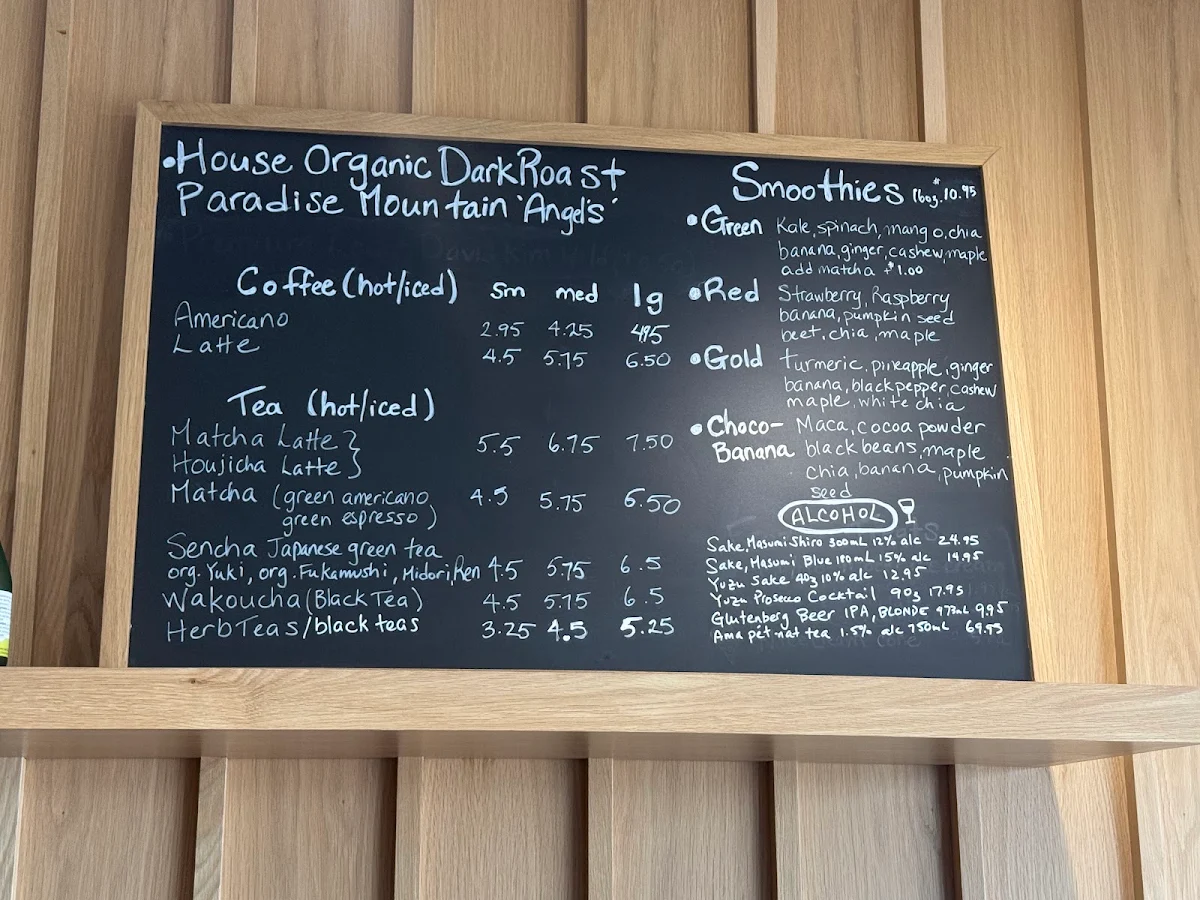 •House Organic Dark Roast
Paradise Mountain 'Angel's'
Coffee (hot/iced) sm med lg
Americano 2.95 4.25 4.95
Latte 4.5 5.75 6.50
Tea (hot/iced)
Matcha Latte }
Houjicha Latte } 5.5 6.75 7.50
Matcha (green americano, 4.5 5.75 6.50
green espresso)
Sencha Japanese green tea
org. Yuki, org. Fukamushi, Midori, Ren 4.5 5.75 6.5
Wakoucha (Black Tea) 4.5 5.75 6.5
Herb Teas/black teas 3.25 4.5 5.25
Smoothies 16oz. $10.95
•Green Kale, spinach, mango, chia
banana, ginger, cashew, maple
add matcha +$1.00
•Red Strawberry, Raspberry
banana, pumpkin seed
beet, chia, maple
•Gold turmeric, pineapple, ginger
banana, black pepper, cashew
maple, white chia
•Choco- Maca, cocoa powder
Banana black beans, maple
chia, banana, pumpkin
seed
ALCOHOL
Sake, Masumi Shiro 300mL 12% alc 24.95
Sake, Masumi Blue 180mL 15% alc 19.95
Yuzu Sake 4oz 10% alc 12.95
Yuzu Prosecco Cocktail 9oz 17.95
Glutenberg Beer IPA, BLONDE 473mL 9.95
Ama pét-nat tea 1.5% alc 750mL 69.95